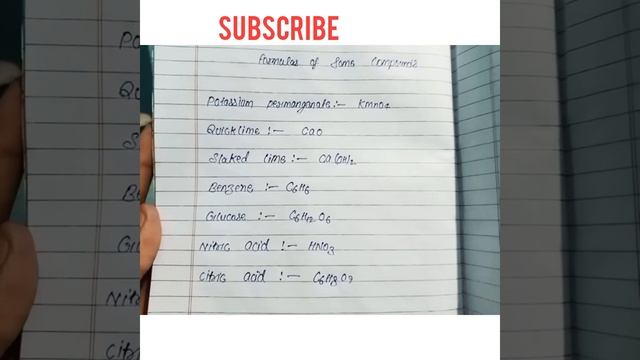 SUBSCRIBE
Formulas of Some Compounds
Potassium permanganate :- KMnO4
Quicklime :- CaO
Slaked lime :- Ca(OH)2
Benzene :- C6H6
Glucose :- C6H12O6
Nitric acid :- HNO3
Citric acid :- C6H8O7